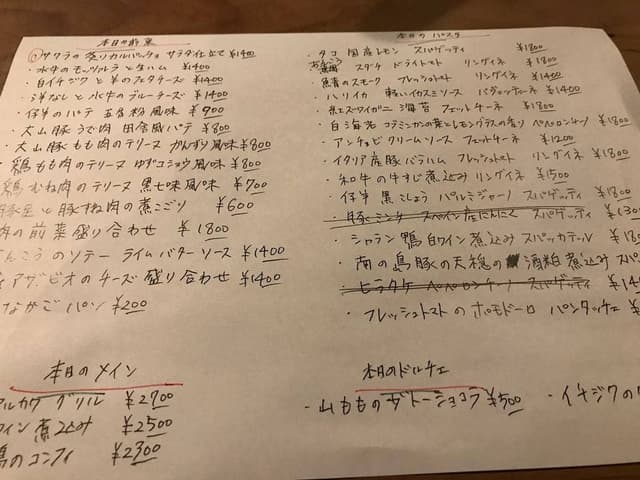 本日の前菜
サワラの炙りカルパッチョ サラダ仕立て ¥1400
・水牛のモッツァレラと生ハム ¥1400
白イチジクと羊のフェタチーズ ¥1400
・洋なしと水牛のブルーチーズ ¥1400
・仔羊のパテ 五香粉風味 ¥900
・大山豚 うで肉 田舎風パテ ¥800
・大山豚 もも肉のテリーヌ かんずり風味 ¥800
鶏もも肉のテリーヌ ゆずコショウ風味 ¥800
鶏むね肉のテリーヌ 黒七味風味 ¥700
豚足と豚すね肉の煮こごり ¥600
前菜盛り合わせ ¥1800
のソテー ライムバターソース ¥1400
のチーズ盛り合わせ ¥1400
パン ¥200
本日のメイン
グリル ¥2900
ワイン煮込み ¥2500
のコンフィ ¥2300
本日のパスタ
・タコ 国産レモン スパゲッティ ¥1800
スダチ ドライトマト リングイネ ¥1800
のスモーク フレッシュトマト リングイネ ¥1400
・ハリイカ 軽いイカスミソース ¥1400
・紅ズワイガニ 海苔 フェットチーネ ¥1800
・白海老 コブミカンの葉とレモングラスの香り ペペロンチーノ ¥1800
・アンチョビクリームソース フェットチーネ ¥1200
・イタリア産豚バラハム フレッシュトマト リングイネ ¥1800
・和牛の牛すじ煮込み リングイネ ¥1500
・仔羊 黒こしょう パルミジャーノ スパゲッティ ¥1800
・豚ミンチ スペイン産にんにく スパゲッティ ¥1300
・シャラン鴨 白ワイン煮込み スパッカテッレ
・南の島豚の天穏の酒粕煮込み
・ヒラタケ ペペロンチーノ スパゲッティ
・フレッシュトマトのポモドーロ
本日のドルチェ
・山もものガトーショコラ ¥500 ・イチジクの